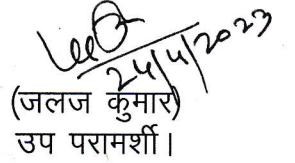 24/4/2023
(जलज कुमार)
उप परामर्शी।